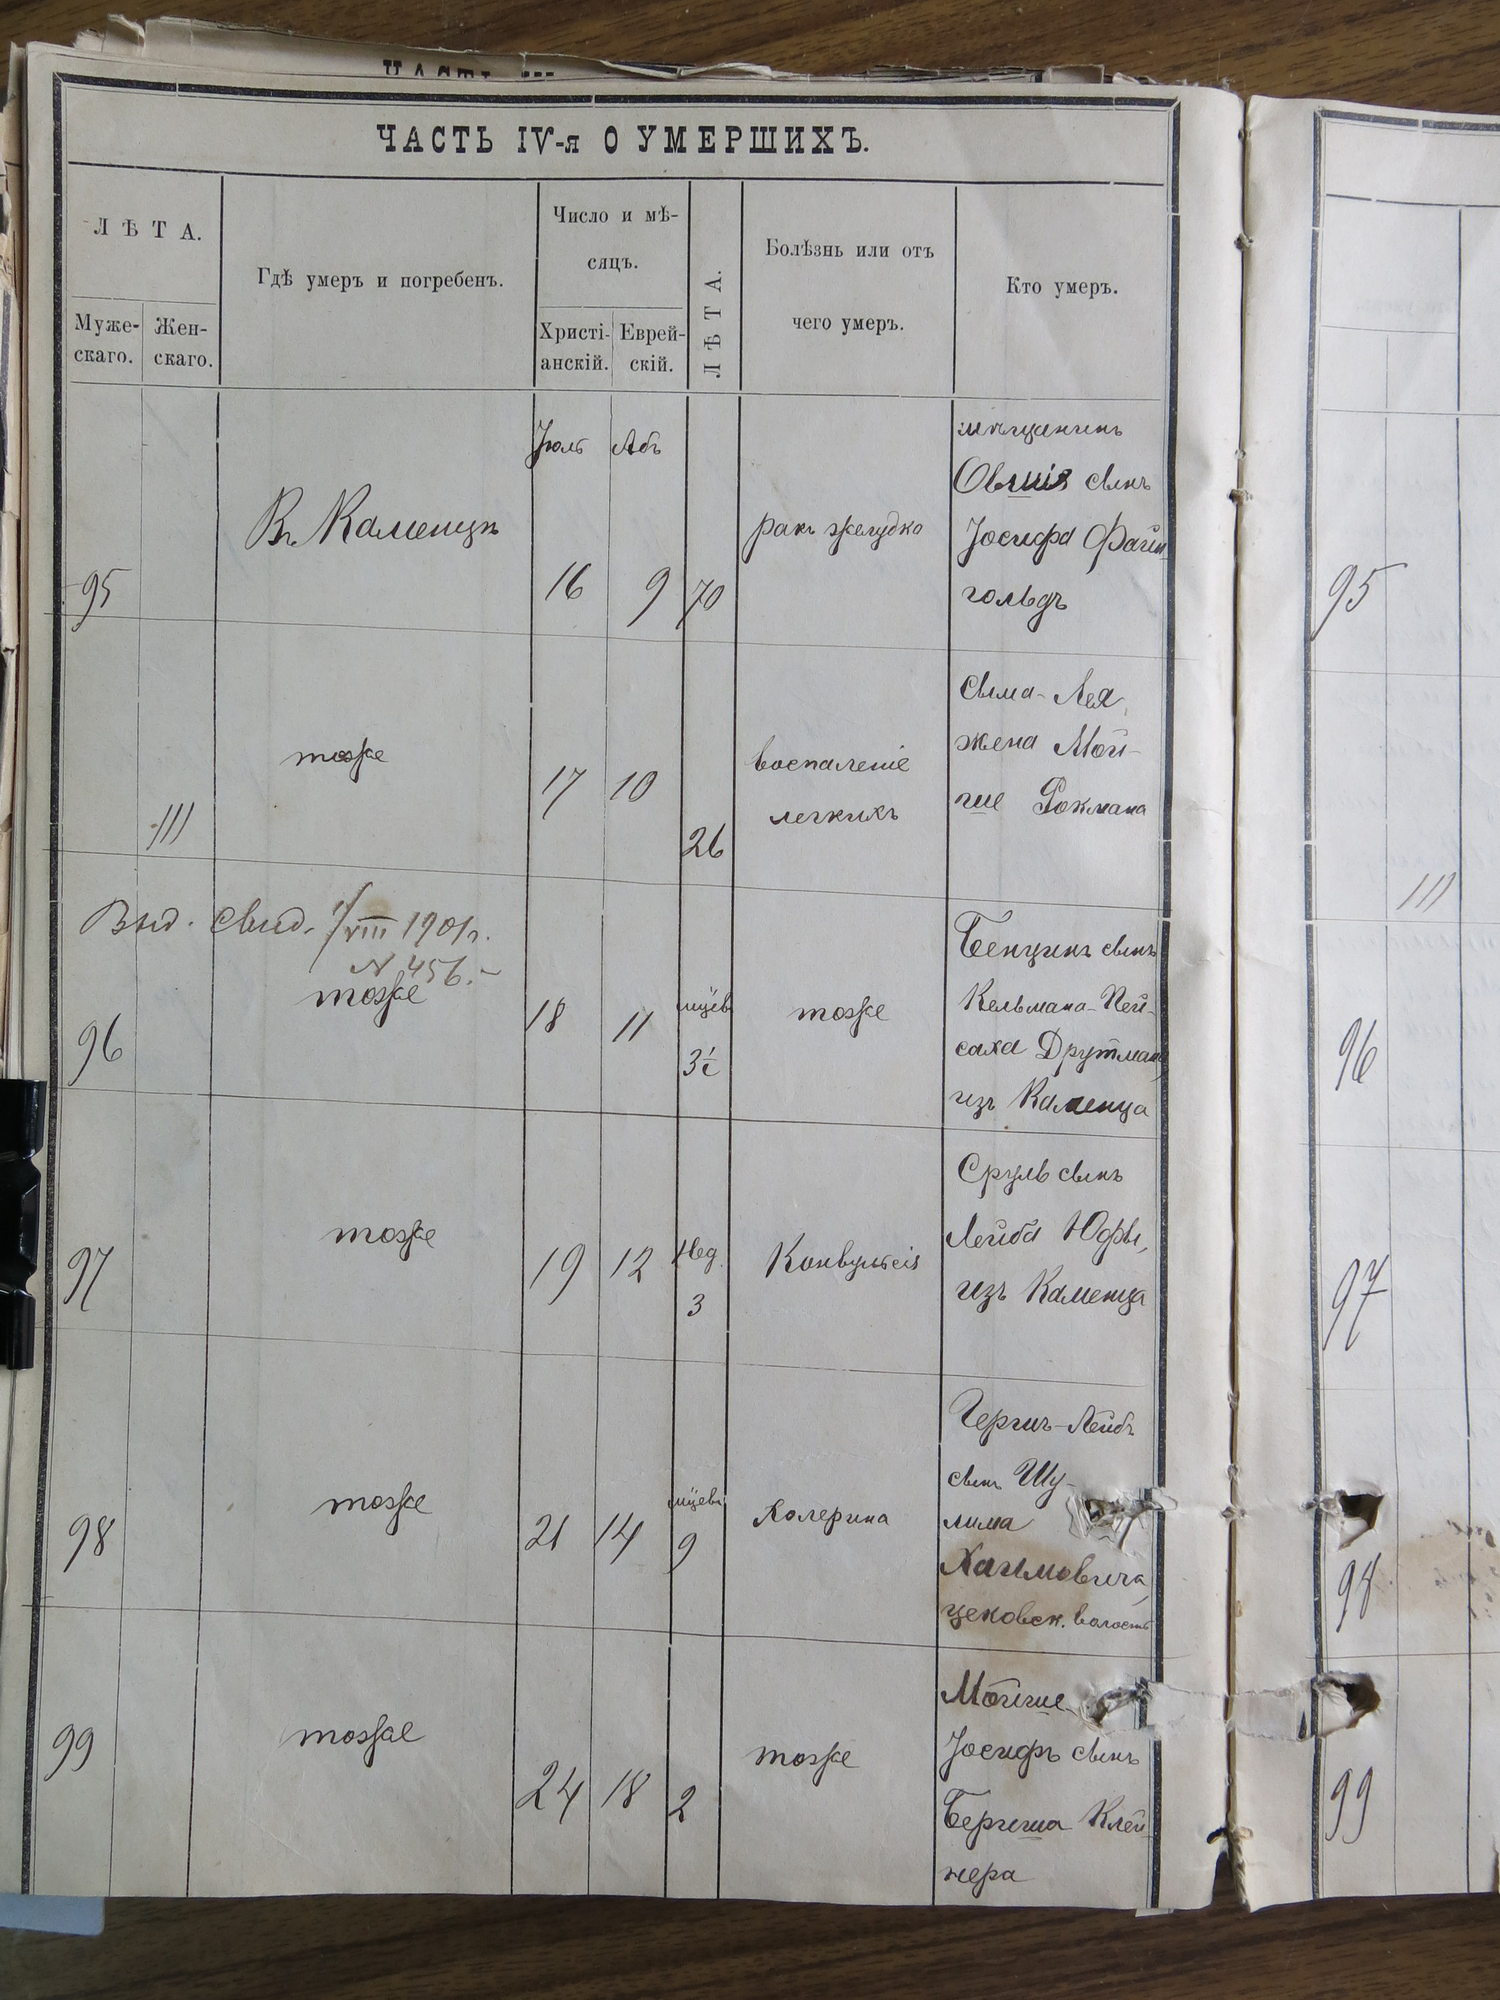 ЧАСТЬ IV-я О УМЕРШИХЪ.
ЛѢТА.
Муже-
скаго.
Жен-
скаго.
Гдѣ умеръ и погребенъ.
Число и мѣ-
сяцъ.
Христі-
анскій.
Еврей-
скій.
ЛѢТА.
Болѣзнь или отъ
чего умеръ.
Кто умеръ.
95
Въ Каменцѣ
Іюль
16
Абъ
9
70
ракъ желудка
мѣщанинъ
Овшія сынъ
Іосифа Файн-
гольдъ
111
тоже
17
10
26
воспаленіе
легкихъ
Сыма-Лея
жена Мой-
ше Фокмана
Выд. свид. 1/VIII 1901 г.
N 456.-
96
тоже
18
11
3½
тоже
Бенционъ сынъ
Кельмана-Пей-
саха Друтмана,
изъ Каменца
97
тоже
19
12
Нед.
3
Конвульсія
Сруль сынъ
Лейба Юфы,
изъ Каменца
98
тоже
21
14
9
Холерина
Гершъ-Лейбъ
сынъ Шу-
лима
Хаимовича,
цековск. волости
99
тоже
24
18
2
тоже
Мойше
Іосифъ сынъ
Бериша Клей-
нера
95
111
96
97
98
99